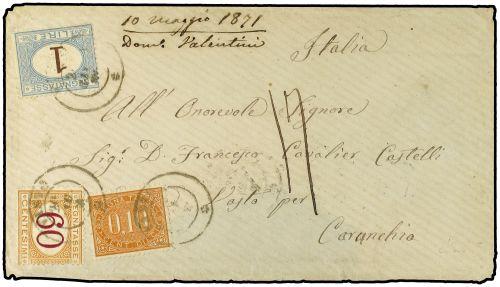 10 maggio 1871
Dom. Valentini
Italia
SEGNATASSE
1
LIRE
All' Onorevole Signore
17
Sig.r D. Francesco Cavalier Castelli
Vasto per
Carunchio
SEGNATASSE
60
CENTESIMI
0.10